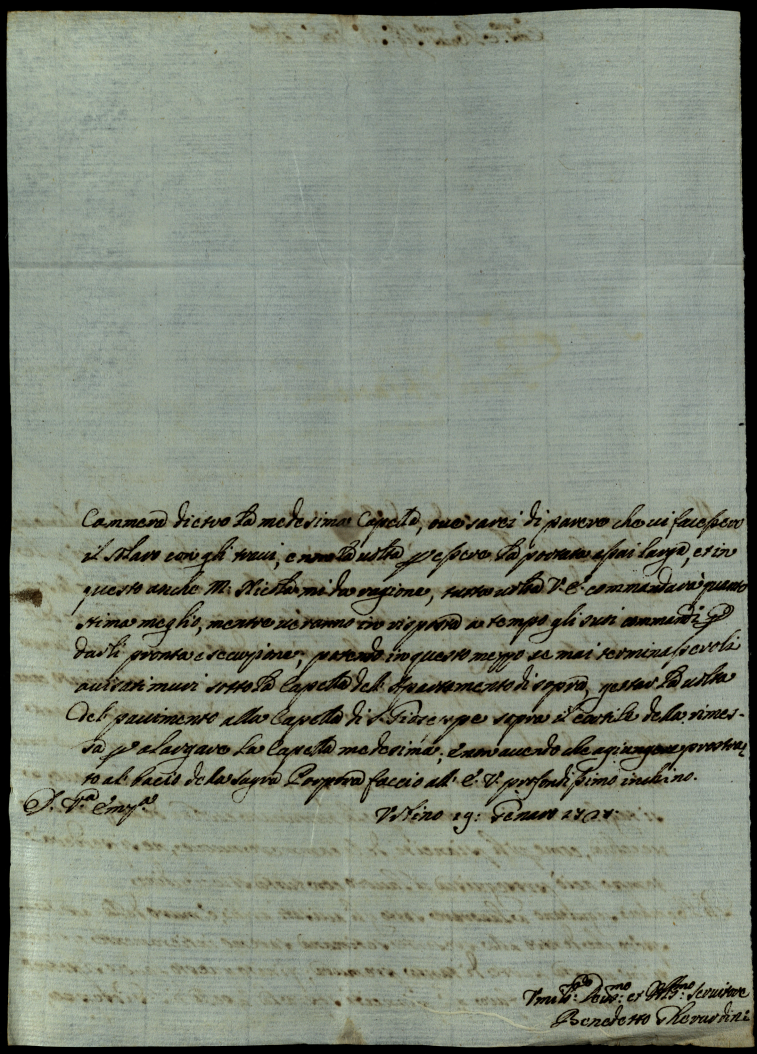 Cammera dietro la medesima Capella, ove sarei di parere che vi facessero
il solaro con gli travi, e non la volta p essere la portata assai larga, et in
questo anche M: Nicla mi da ragione, tutta volta V: E: commandarà quanto
stima meglio, mentre veranno a tempo gli suoi commandi p
darli pronta esecuzione, potendo in questo mezzo se mai terminasseroli
avisati muri sotto la Capella del: Apartamento di sopra, gettar la volta
del pavimento alla Capella di S: Gioseppe sopra il cortile della rimes-
sa p alargare la Capella medesima; e non avendo che agiungere prostra-
to al bacio dela sagra Porpora faccio all: E: V: profondissimo inchino.
D. V:ra Em:za
Urbino 19: Genaro
Umil:mo Dev:mo et Obl:mo Servitore
Benedetto Gherardini